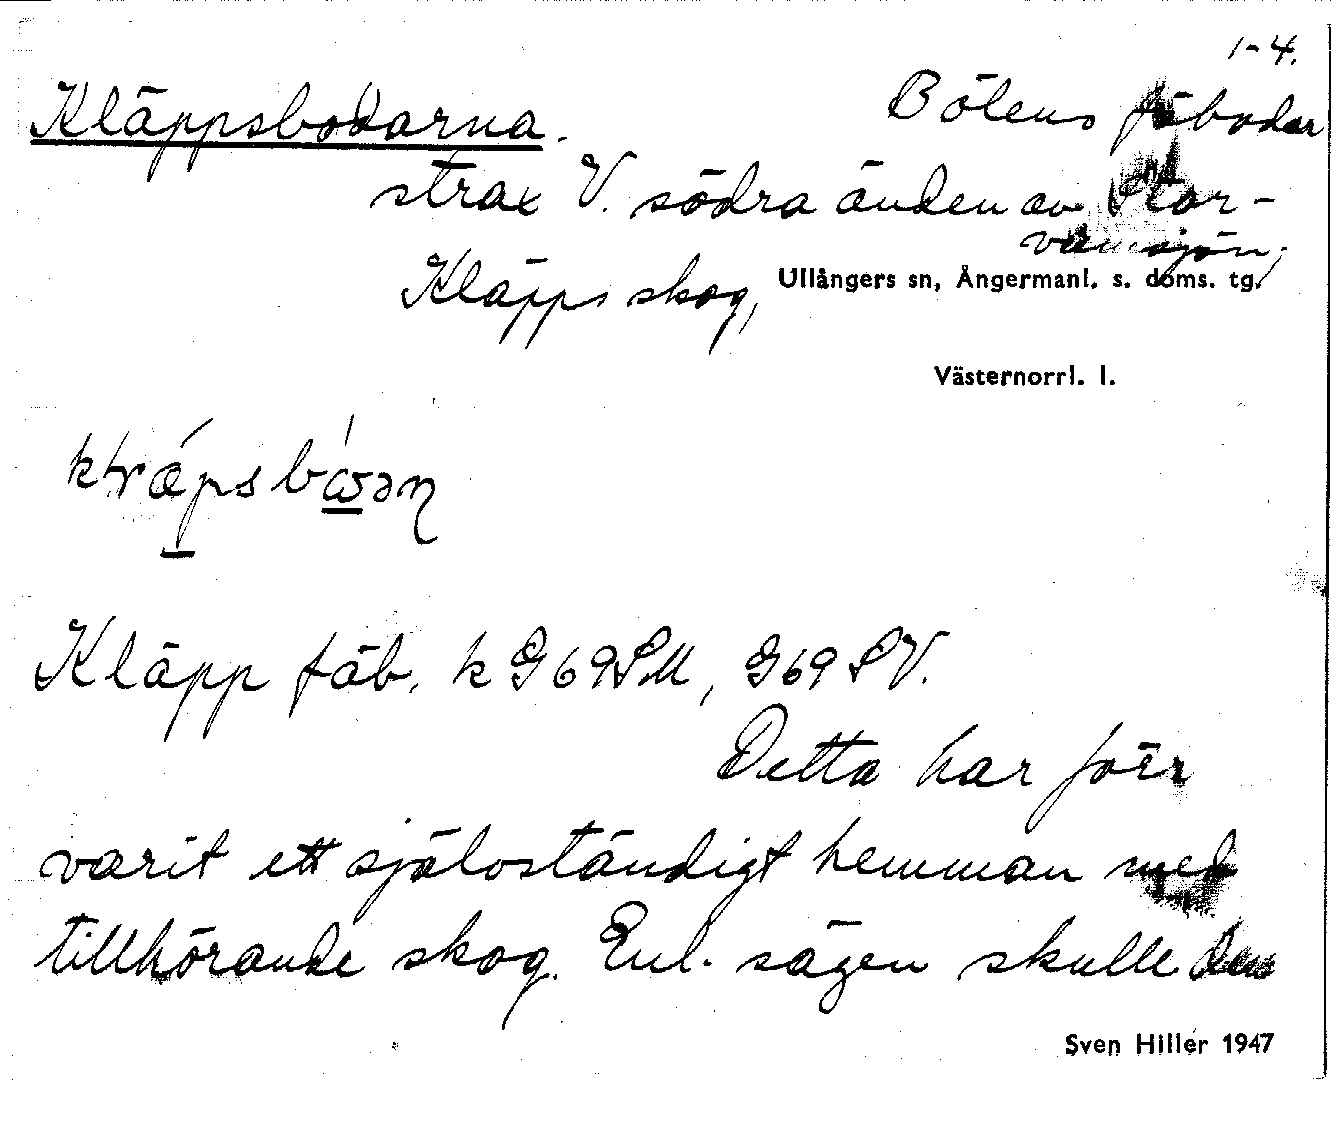 1-4.
Kläppsbodarna. Bölens fäbodar
strax V. södra änden av Stor-
vamsjön,
Kläpps skog, Ullångers sn, Ångermanl. s. doms. tg.
Västernorrl. l.
Kläpp fäb. k G69SM, G69SV.
Detta har förr
varit ett självständigt hemman med
tillhörande skog. Enl. sägen skulle den
Sven Hillér 1947